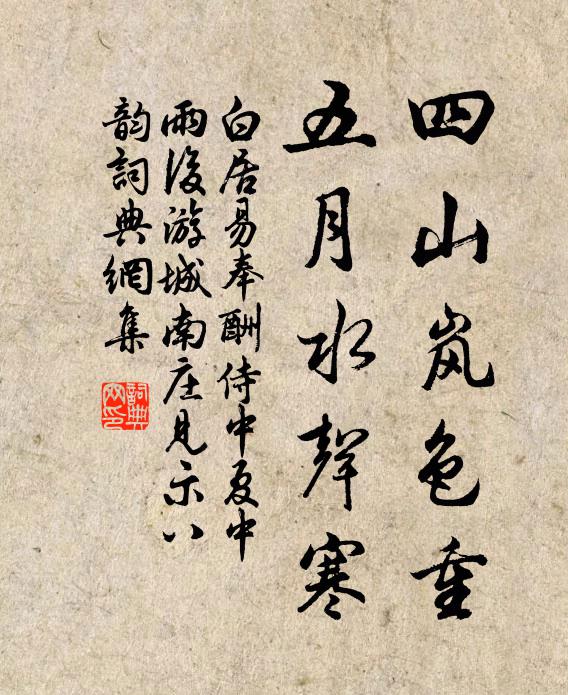 四山岚色重
五月水聲寒
白居易奉酬侍中夏中
雨後游城南庄見示八
韵詞典網集
詞典
网印